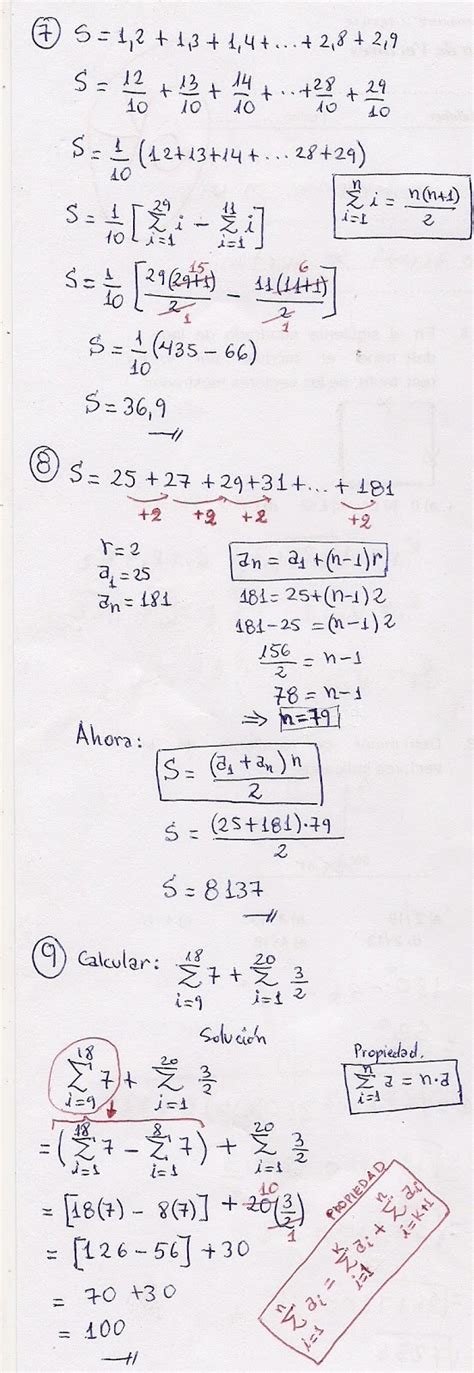 7 S = 1,2 + 1,3 + 1,4 + ... + 2,8 + 2,9
S = 12/10 + 13/10 + 14/10 + ... + 28/10 + 29/10
S = 1/10 (12+13+14+ ... 28+29)
S = 1/10 [ 29 Σ i=1 i − 11 Σ i=1 i ]
n Σ i=1 i = n(n+1)/2
S = 1/10 [ 29(29+1)/2 − 11(11+1)/2 ]
15 1 6 1
S = 1/10 (435 − 66)
S = 36,9
8 S = 25 + 27 + 29 + 31 + ... + 181
+2 +2 +2 +2
r = 2
a₁ = 25
aₙ = 181
aₙ = a₁ + (n−1)r
181 = 25 + (n−1)2
181 − 25 = (n−1)2
156/2 = n−1
78 = n−1
⇒ n = 79
Ahora:
S = (a₁ + aₙ) n / 2
S = (25+181)·79 / 2
S = 8137
9 Calcular: 18 Σ i=9 7 + 20 Σ i=1 3/2
Solución
18 Σ i=9 7 + 20 Σ i=1 3/2
Propiedad.
n Σ i=1 a = n·a
= ( 18 Σ i=1 7 − 8 Σ i=1 7 ) + 20 Σ i=1 3/2
= [18(7) − 8(7)] + 20(3/2)
10 1
= [126 − 56] + 30
= 70 + 30
= 100
PROPIEDAD
n Σ i=1 aᵢ = k Σ i=1 aᵢ + n Σ i=k+1 aᵢ